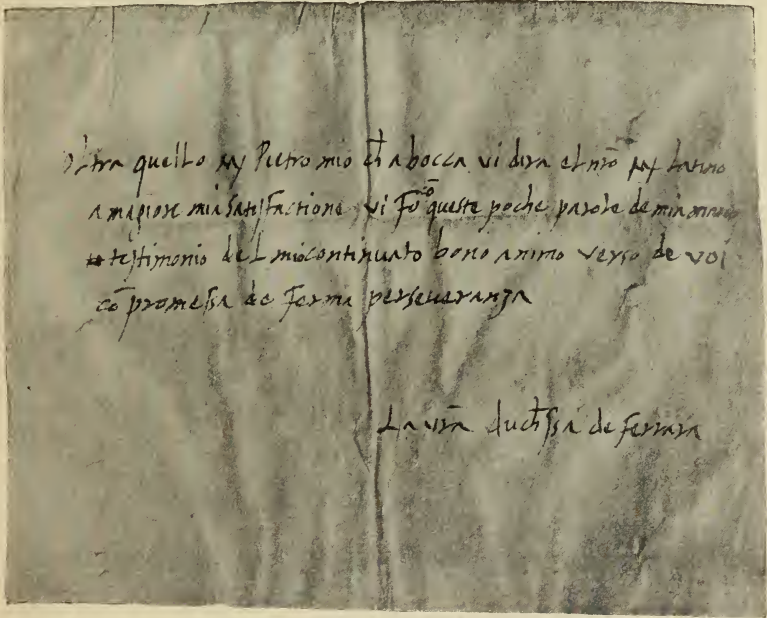 Oltra quello my Pietro mio ch̄ a bocca vi dira el nr̄o
a magiore mia satisfactione vi fo cō queste poche parole de mia mano
testimonio del mio continuato bono animo verso de voi
cō promessa de ferma perseueranza
La vr̄a duch̄ssa de ferrara